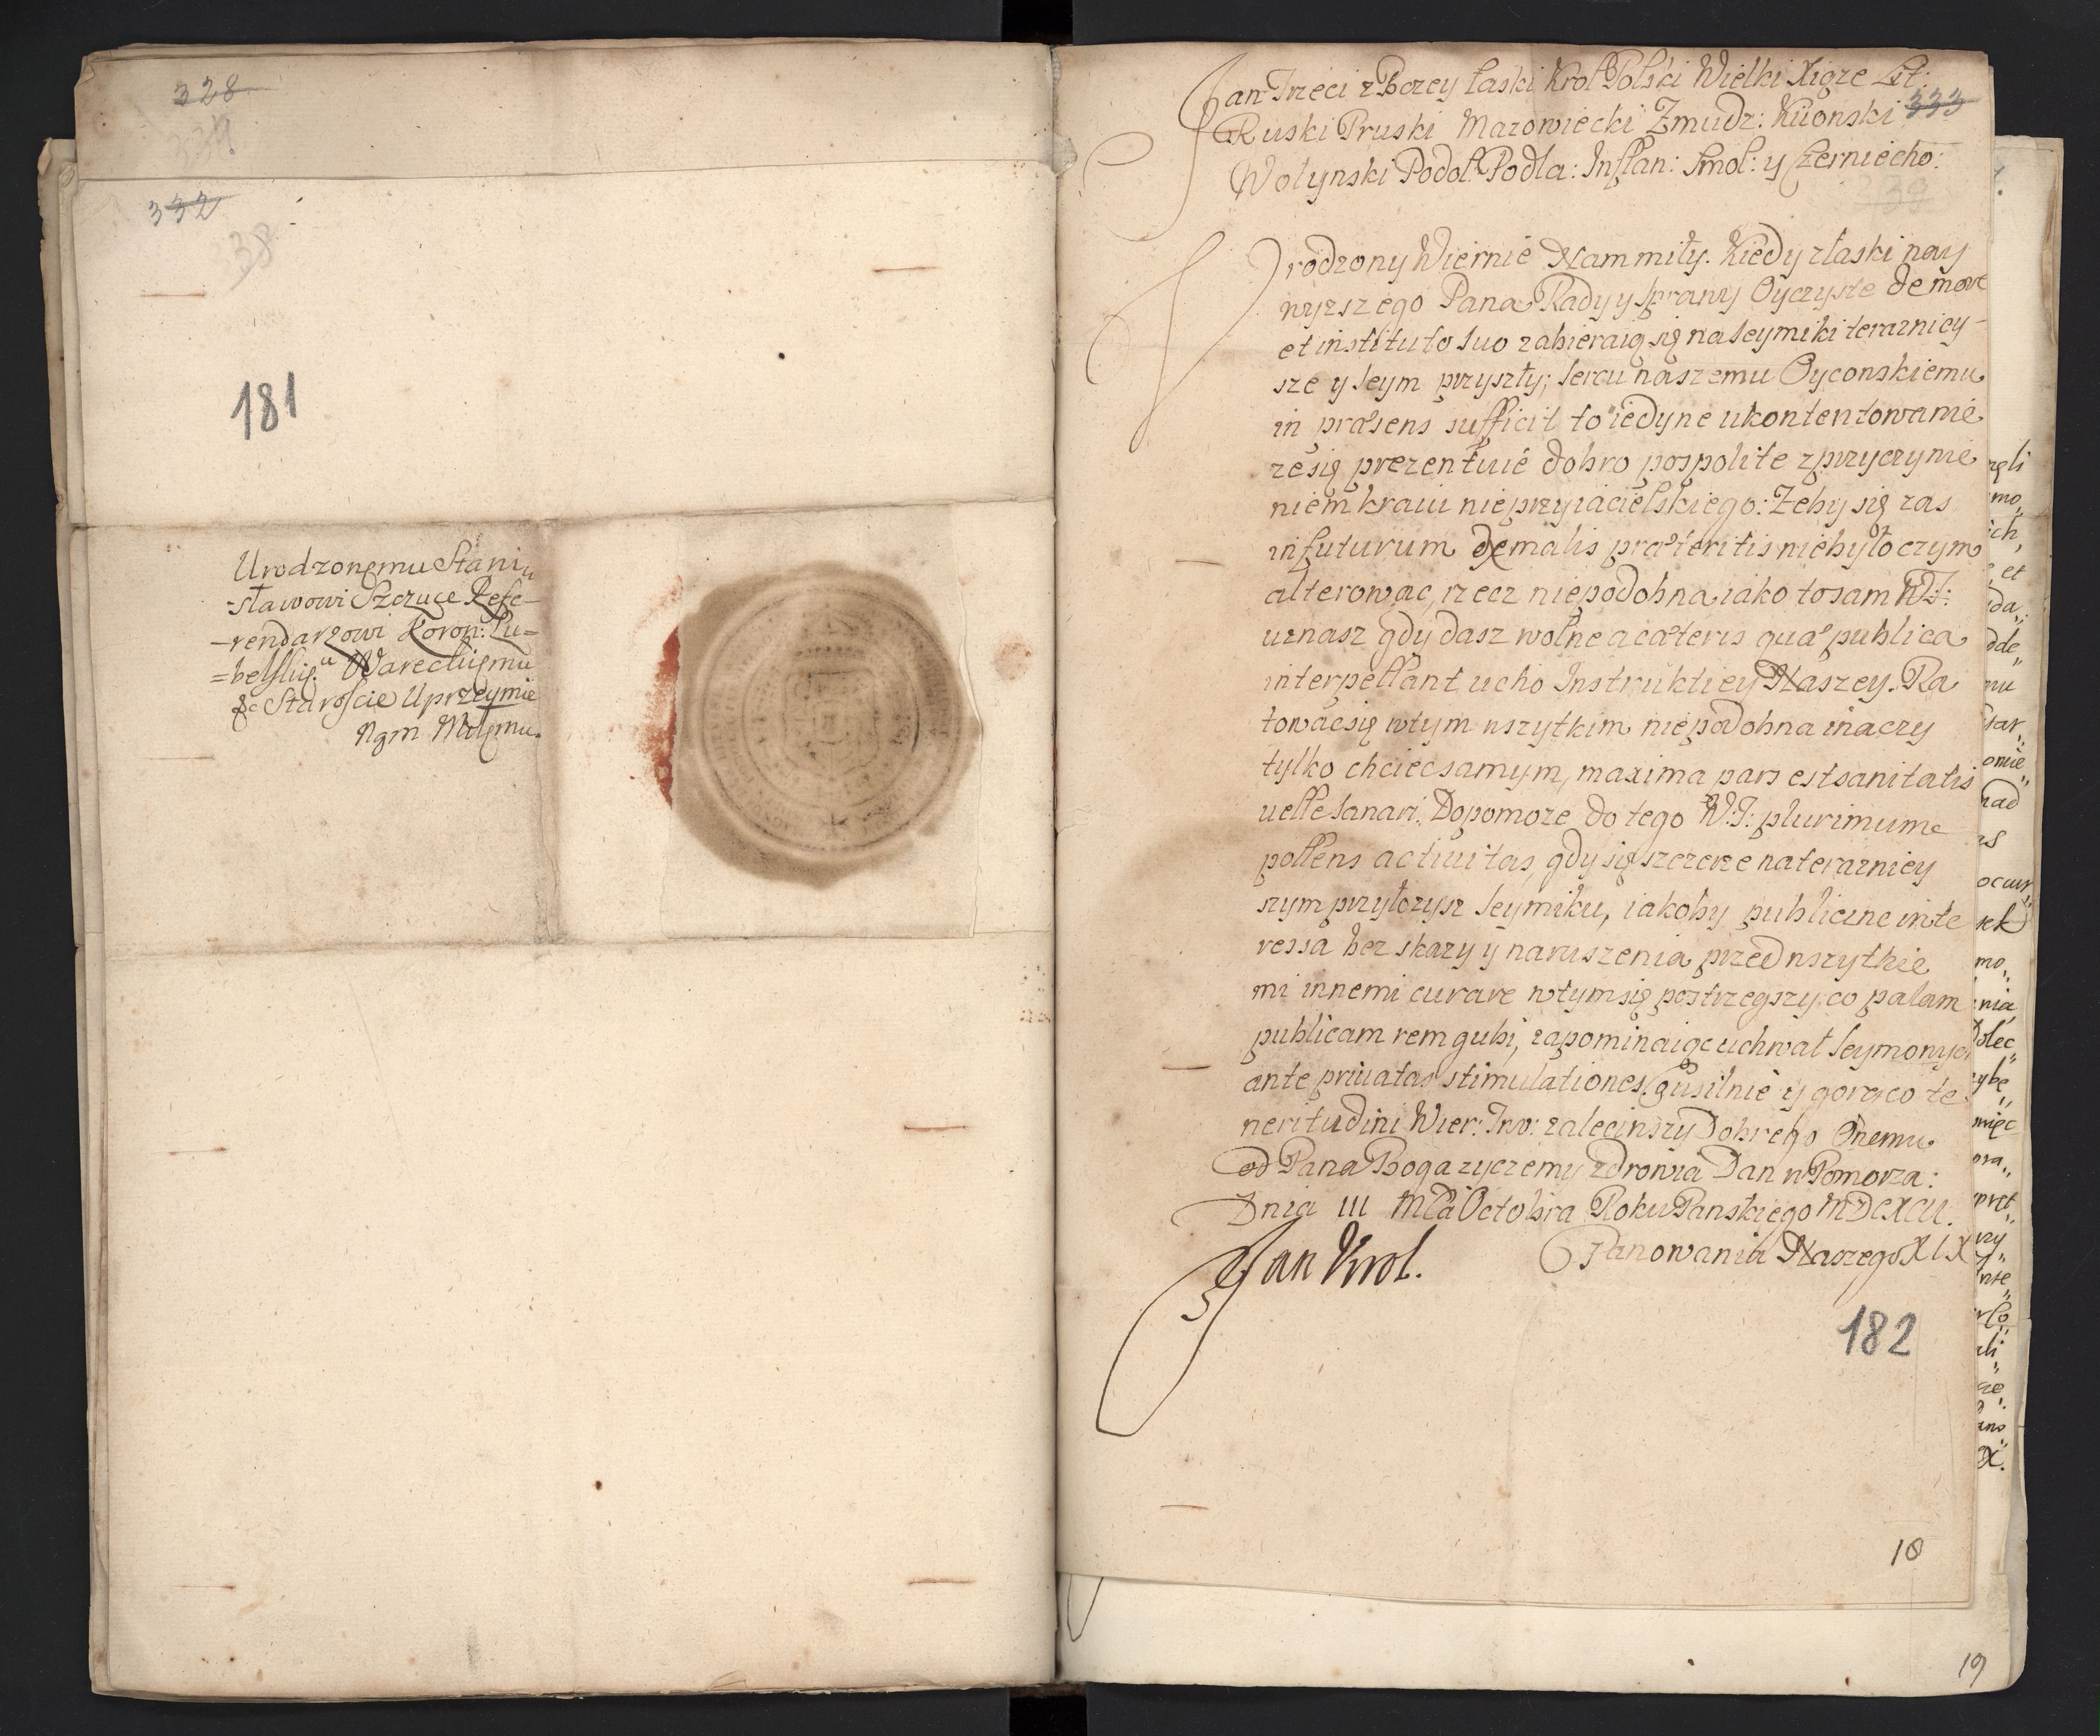 328
332
338
181
Urodzonemu Stani„
-sławowi Szczuce Refe-
-rendarzowi Koron: Lu=
=belskie.u Wareckiemu
&c Staroscie Uprzeymie
Nam Miłemu.
Jan Trzeci z Bozey łaski Krol Polski Wielki Xiąze Lit:
Ruski Pruski Mazowiecki Zmudz: Kiiowski 333
Wołynski Podol: Podla: Inflan: Smol: y Czerniecho:
Urodzony Wiernie Nam miły. Kiedy z łaski nay
wyzszego Pana Rady y sprawy Oyczyste de more
et instituto suo zabieraią się na Seymiki terazniey-
sze y Seym przyszły; sercu naszemu Oycowskiemu
in præsens sufficit to iedyne ukontentowanie
ze się prezentuie dobro pospolite z przyczynie
niem kraiu nieprzyiacielskiego: Zeby się zas
in futurum de malis præteritis niebyło czym
alterowac, rzecz niepodobna iako to sam W.T:
uznasz gdy dasz wolne a cæteris quæ publica
interpellant ucho Instrukciey Naszey. Ra
towac się w tym wszytkim niepodobna inaczy
tylko chciec samym, maxima pars est sanitatis
uelle sanari. Dopomoze do tego W.T: plurimum
pollens actiuitas, gdy się szczerze na terazniey
szym przyłozysz Seymiku, iakoby publiczne inte
ressa bez skazy y naruszenia przed wszytkie
mi innemi curare w tym się postrzegszy, co palam
publicam rem gubi, zapominaiąc uchwał Seymowych
ante priuatas stimulationes. Co usilnie y gorąco te
neritudini Wier: Two: zaleciwszy Dobrego Onemu
od Pana Boga zyczemy zdrowia Dan w Pomorza:
Dnia III Mca Octobra Roku Panskiego MDCXCII.
Panowania Naszego XIX
Jan Krol.
182
18
19